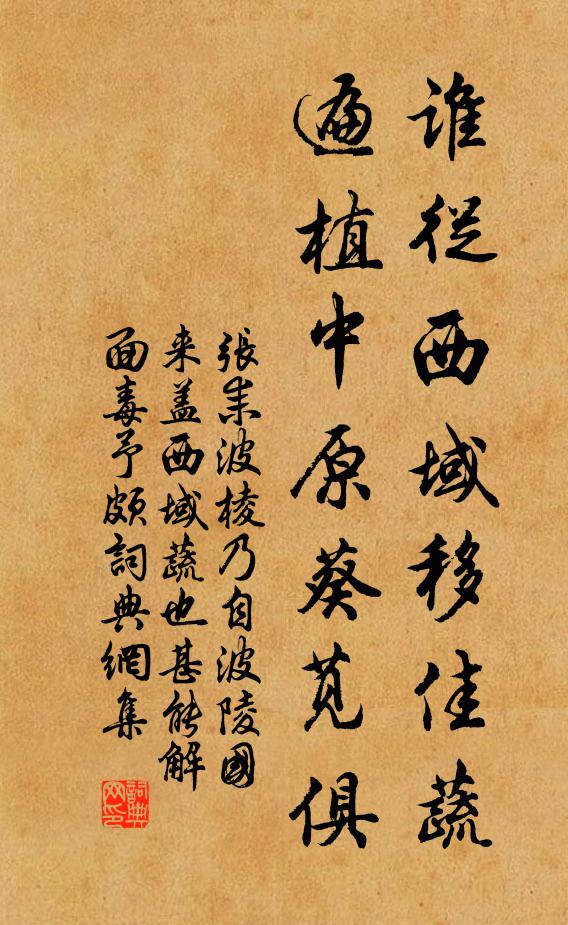 誰從西域移佳蔬
遍植中原葵莧俱
張耒波棱乃自波陵國
来盖西域蔬也甚能解
面毒予颇詞典網集
詞典網印